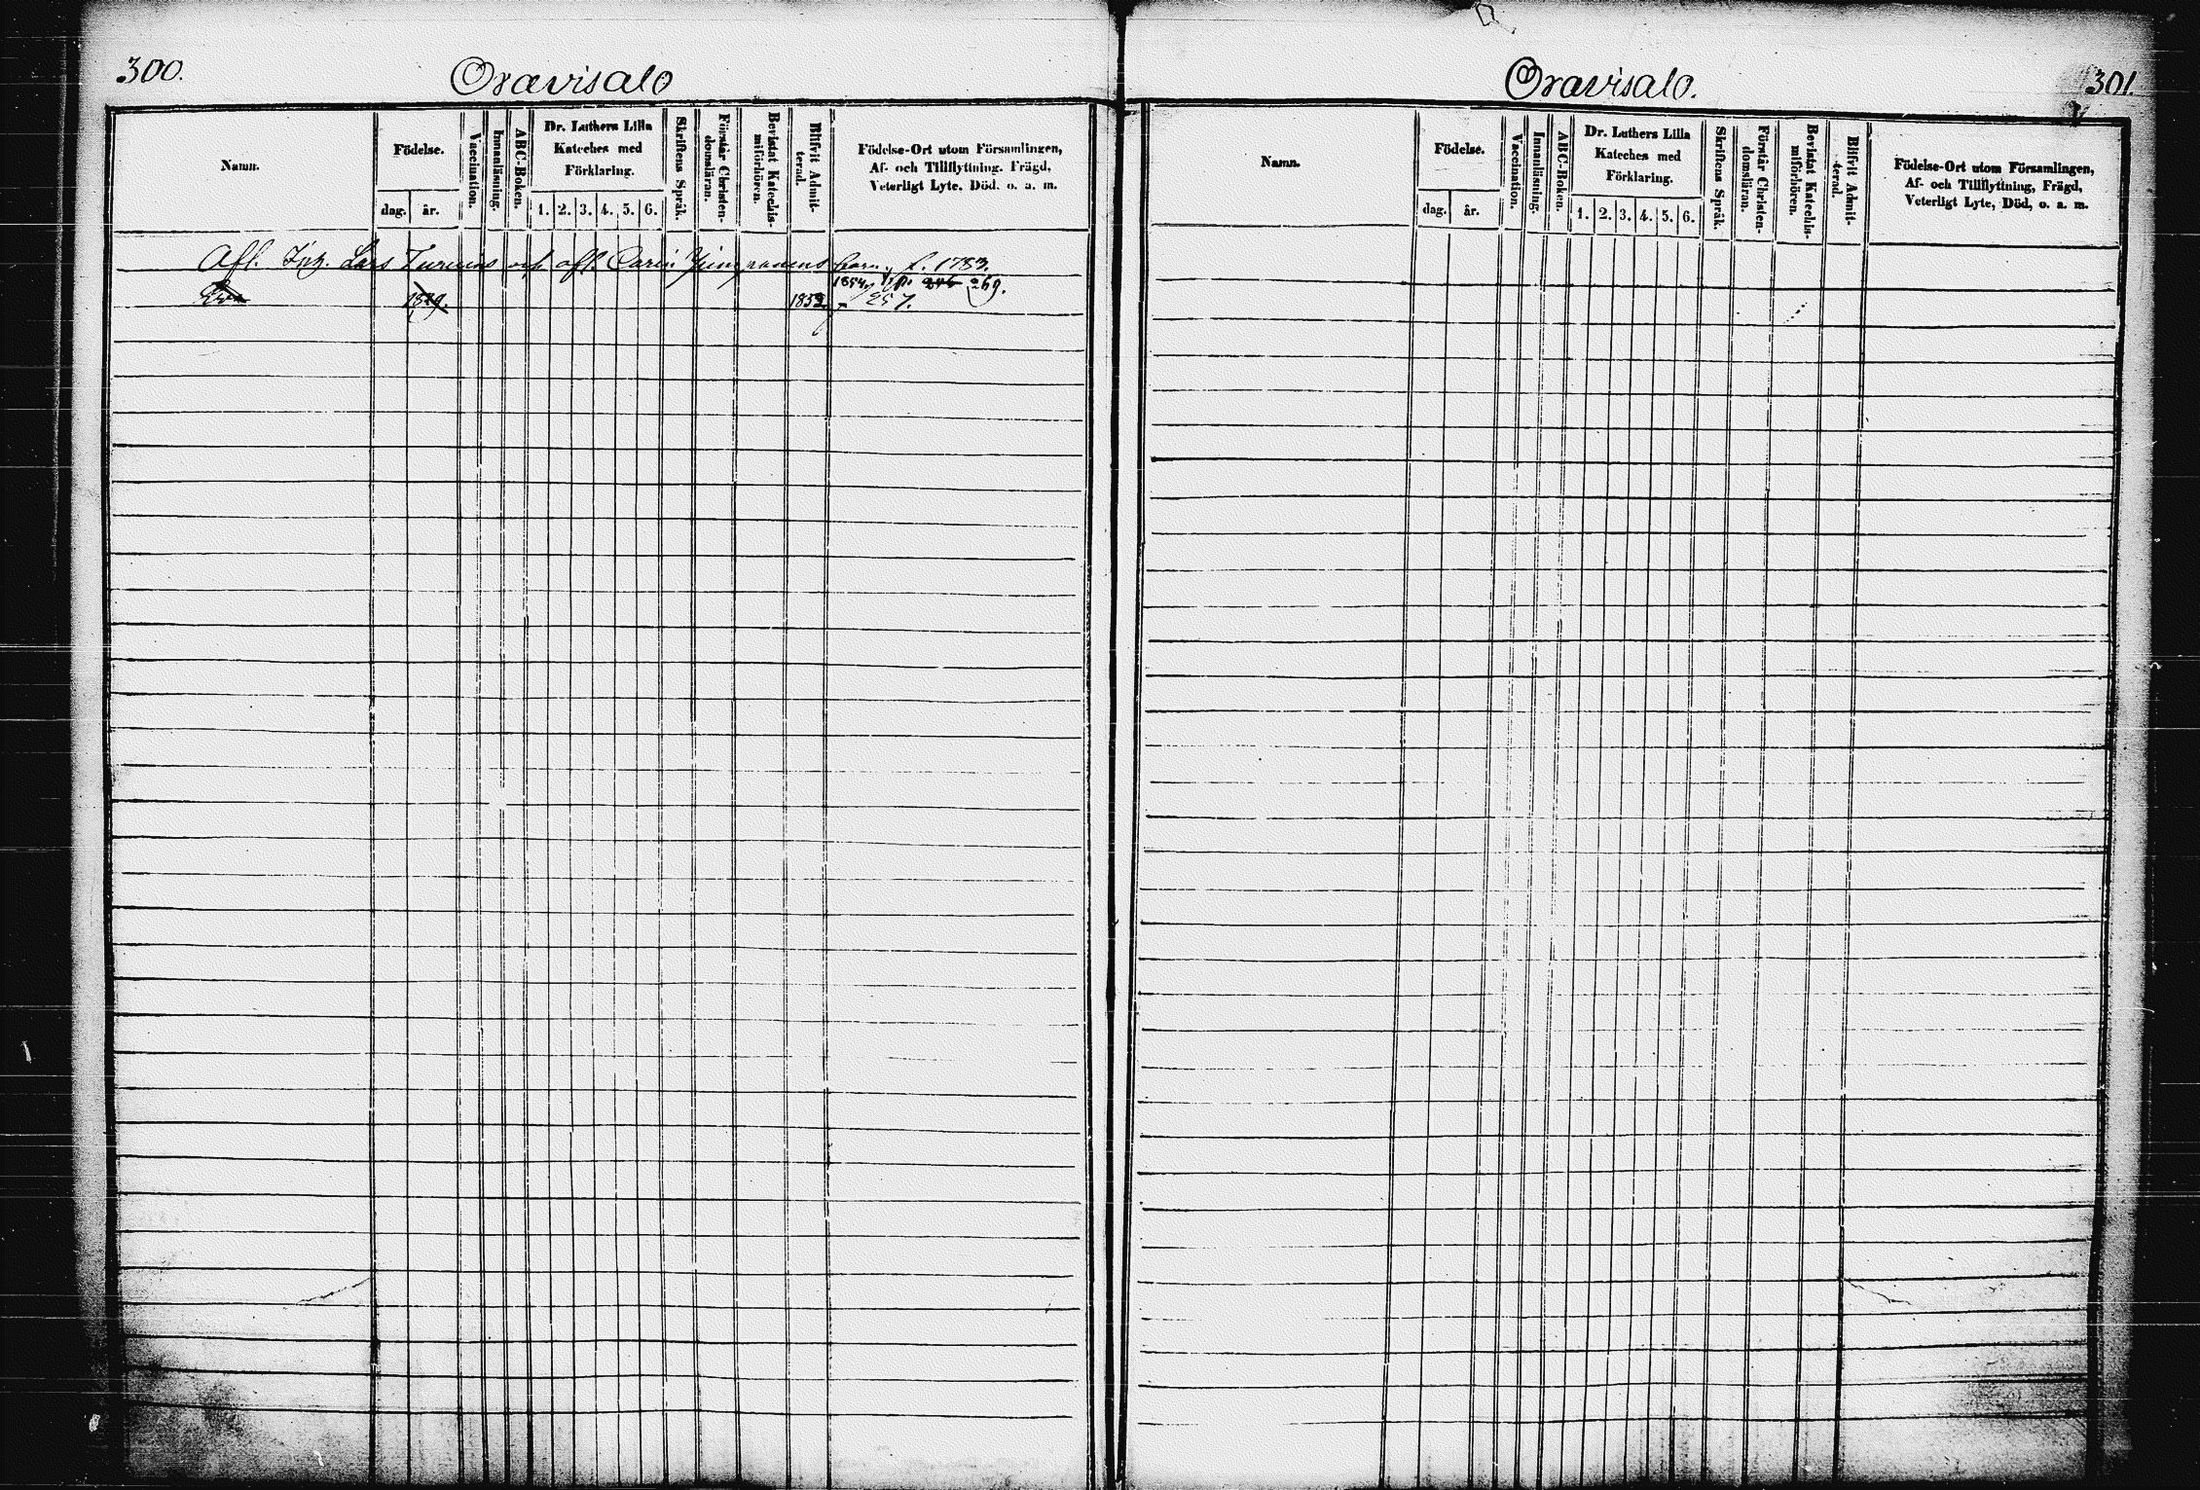 300.
Oravisalo
Namn.
Födelse.
dag. år.
Vaccination.
Innanläsning.
ABC-Boken.
Dr. Luthers Lilla
Kateches med
Förklaring.
1. 2. 3. 4. 5. 6.
Skriftens Språk.
Förstår Christen-
domsläran.
Bevistat Katechis-
miförhören.
Blifvit Admit-
terad.
Födelse-Ort utom Församlingen,
Af- och Tillflyttning. Frägd,
Veterligt Lyte. Död. o. a. m.
Afl. Lars Turuins och afl. Carin barn, f. 1783.
1854 269.
Eva 1829. 1852 257.
Oravisalo.
301.
Namn.
Födelse.
dag. år.
Vaccination.
Innanläsning.
ABC-Boken.
Dr. Luthers Lilla
Kateches med
Förklaring.
1. 2. 3. 4. 5. 6.
Skriftens Språk.
Förstår Christen-
domsläran.
Bevistat Katechis-
miförhören.
Blifvit Admit-
terad.
Födelse-Ort utom Församlingen,
Af- och Tillflyttning, Frägd,
Veterligt Lyte, Död, o. a. m.